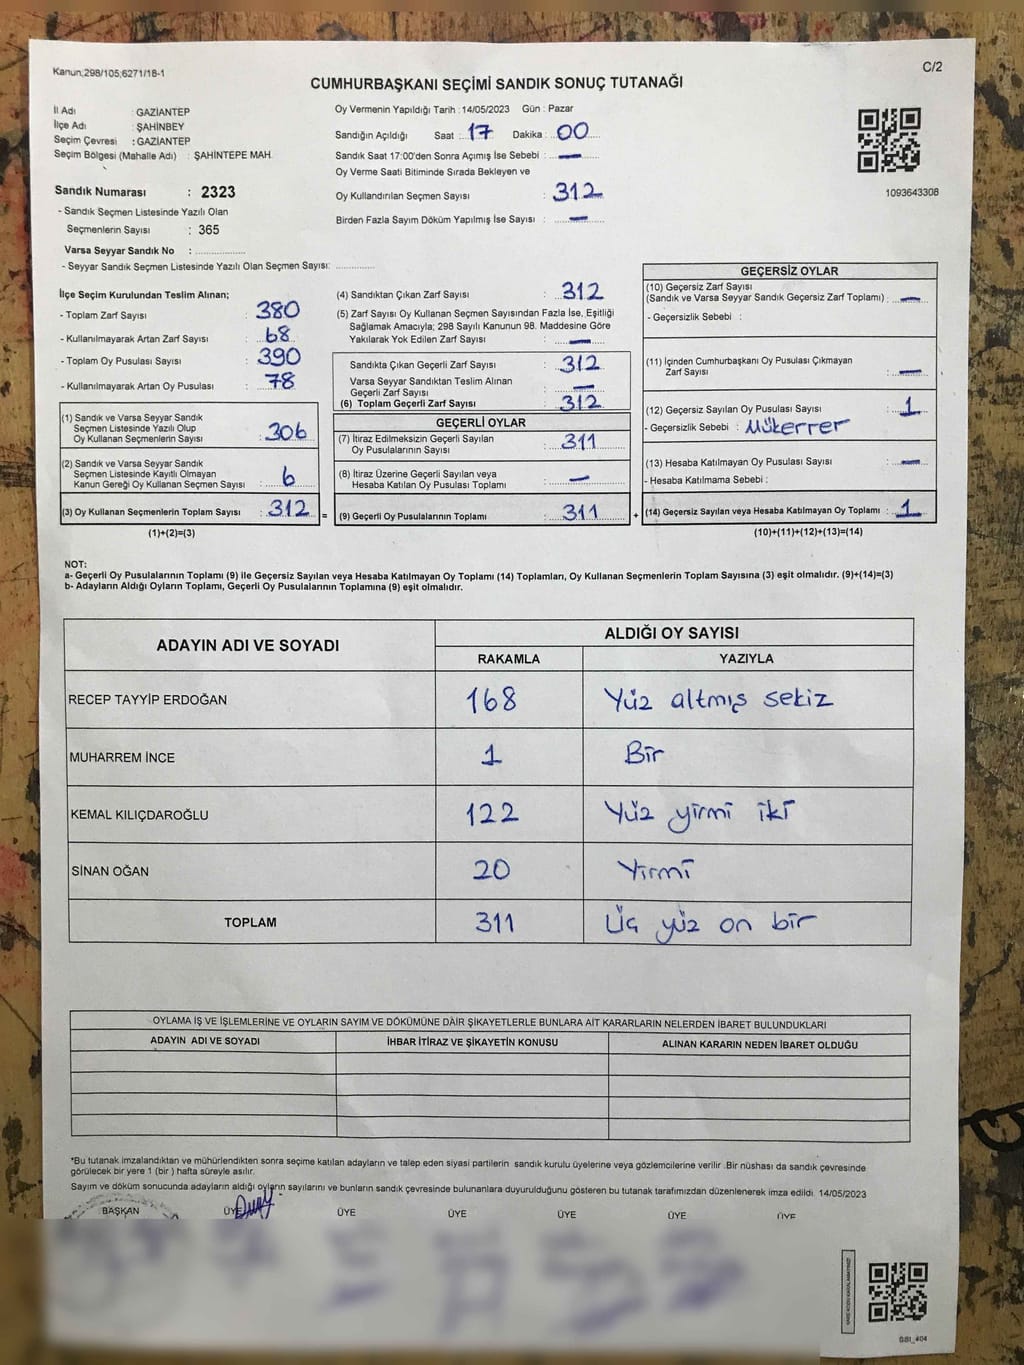 Kanun;298/105;6271/18-1
C/2
CUMHURBAŞKANI SEÇİMİ SANDIK SONUÇ TUTANAĞI
İl Adı : GAZİANTEP
İlçe Adı : ŞAHİNBEY
Seçim Çevresi : GAZİANTEP
Seçim Bölgesi (Mahalle Adı) : ŞAHİNTEPE MAH.
Sandık Numarası : 2323
- Sandık Seçmen Listesinde Yazılı Olan
Seçmenlerin Sayısı : 365
Varsa Seyyar Sandık No : ....................
- Seyyar Sandık Seçmen Listesinde Yazılı Olan Seçmen Sayısı: ...............
Oy Vermenin Yapıldığı Tarih : 14/05/2023 Gün : Pazar
Sandığın Açıldığı Saat : 17 Dakika : 00
Sandık Saat 17:00'den Sonra Açımış İse Sebebi : —
Oy Verme Saati Bitiminde Sırada Bekleyen ve
Oy Kullandırılan Seçmen Sayısı : 312
Birden Fazla Sayım Döküm Yapılmış İse Sayısı : —
1093643308
İlçe Seçim Kurulundan Teslim Alınan;
- Toplam Zarf Sayısı : 380
- Kullanılmayarak Artan Zarf Sayısı : 68
- Toplam Oy Pusulası Sayısı : 390
- Kullanılmayarak Artan Oy Pusulası : 78
(1) Sandık ve Varsa Seyyar Sandık
Seçmen Listesinde Yazılı Olup
Oy Kullanan Seçmenlerin Sayısı : 306
(2) Sandık ve Varsa Seyyar Sandık
Seçmen Listesinde Kayıtlı Olmayan
Kanun Gereği Oy Kullanan Seçmen Sayısı : 6
(3) Oy Kullanan Seçmenlerin Toplam Sayısı : 312 =
(1)+(2)=(3)
(4) Sandıktan Çıkan Zarf Sayısı : 312
(5) Zarf Sayısı Oy Kullanan Seçmen Sayısından Fazla İse, Eşitliği
Sağlamak Amacıyla; 298 Sayılı Kanunun 98. Maddesine Göre
Yakılarak Yok Edilen Zarf Sayısı : —
Sandıkta Çıkan Geçerli Zarf Sayısı : 312
Varsa Seyyar Sandıktan Teslim Alınan
Geçerli Zarf Sayısı : —
(6) Toplam Geçerli Zarf Sayısı : 312
GEÇERLİ OYLAR
(7) İtiraz Edilmeksizin Geçerli Sayılan
Oy Pusulalarının Sayısı : 311
(8) İtiraz Üzerine Geçerli Sayılan veya
Hesaba Katılan Oy Pusulası Toplamı : —
(9) Geçerli Oy Pusulalarının Toplamı : 311 +
GEÇERSİZ OYLAR
(10) Geçersiz Zarf Sayısı
(Sandık ve Varsa Seyyar Sandık Geçersiz Zarf Toplamı) : —
- Geçersizlik Sebebi :
(11) İçinden Cumhurbaşkanı Oy Pusulası Çıkmayan
Zarf Sayısı : —
(12) Geçersiz Sayılan Oy Pusulası Sayısı : 1
- Geçersizlik Sebebi : Mükerrer
(13) Hesaba Katılmayan Oy Pusulası Sayısı : —
- Hesaba Katılmama Sebebi :
(14) Geçersiz Sayılan veya Hesaba Katılmayan Oy Toplamı : 1
(10)+(11)+(12)+(13)=(14)
NOT:
a- Geçerli Oy Pusulalarının Toplamı (9) ile Geçersiz Sayılan veya Hesaba Katılmayan Oy Toplamı (14) Toplamları, Oy Kullanan Seçmenlerin Toplam Sayısına (3) eşit olmalıdır. (9)+(14)=(3)
b- Adayların Aldığı Oyların Toplamı, Geçerli Oy Pusulalarının Toplamına (9) eşit olmalıdır.
ADAYIN ADI VE SOYADI
ALDIĞI OY SAYISI
RAKAMLA YAZIYLA
RECEP TAYYİP ERDOĞAN 168 Yüz altmış sekiz
MUHARREM İNCE 1 Bir
KEMAL KILIÇDAROĞLU 122 Yüz yirmi iki
SİNAN OĞAN 20 Yirmi
TOPLAM 311 Üç yüz on bir
OYLAMA İŞ VE İŞLEMLERİNE VE OYLARIN SAYIM VE DÖKÜMÜNE DAİR ŞİKAYETLERLE BUNLARA AİT KARARLARIN NELERDEN İBARET BULUNDUKLARI
ADAYIN ADI VE SOYADI İHBAR İTİRAZ VE ŞİKAYETİN KONUSU ALINAN KARARIN NEDEN İBARET OLDUĞU
*Bu tutanak imzalandıktan ve mühürlendikten sonra seçime katılan adayların ve talep eden siyasi partilerin sandık kurulu üyelerine veya gözlemcilerine verilir .Bir nüshası da sandık çevresinde
görülecek bir yere 1 (bir ) hafta süreyle asılır.
Sayım ve döküm sonucunda adayların aldığı oyların sayılarını ve bunların sandık çevresinde bulunanlara duyurulduğunu gösteren bu tutanak tarafımızdan düzenlenerek imza edildi. 14/05/2023
BAŞKAN ÜYE ÜYE ÜYE ÜYE ÜYE ÜYE